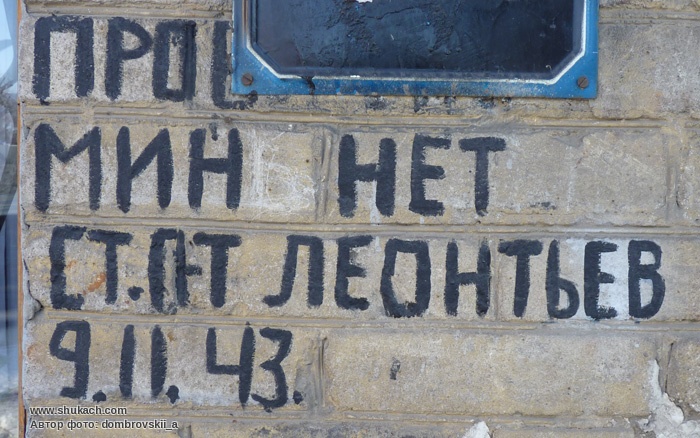 ПРО
МИН НЕТ
СТ.Л-Т ЛЕОНТЬЕВ
9.11.43.
www.shukach.com
Автор фото: dombrovskii_a